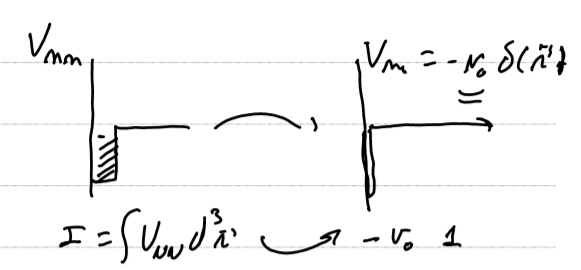 V_{NN}
V_{NN} = -v_0 δ(r⃗)
I = ∫ V_{NN} d^3 r⃗ → -v_0 1